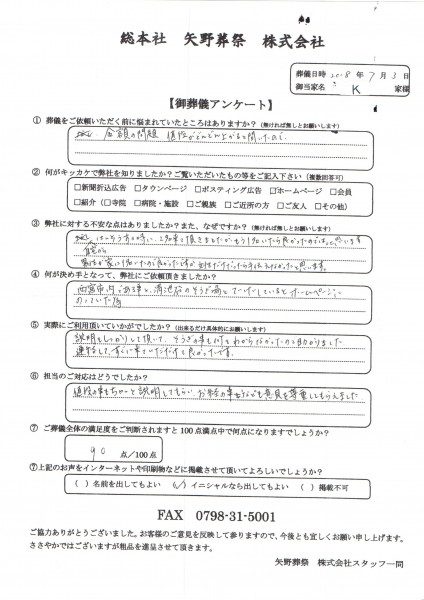 総本社 矢野葬祭 株式会社
葬儀日時 2018年7月3日
御当家名 K 家様
【御葬儀アンケート】
① 葬儀をご依頼いただく前に悩まれていたところはありますか？(無ければ無しとお願いします)
金額の問題 値段がどんどん上がると聞いたので
② 何がキッカケで弊社を知りましたか？ご覧いただいたもの等をご記入下さい（複数回答可）
□新聞折込広告 □タウンページ □ポスティング広告 □ホームページ □会員
□紹介（□寺院 □病院・施設 □ご親族 □ご近所の方 □ご友人 □その他）
③ 弊社に対する不安な点はありましたか？また、なぜですか？(無ければ無しとお願いします)
④ 何が決め手となって、弊社にご依頼頂きましたか？
西宮市内
のっていた為
⑤ 実際にご利用頂いていかがでしたか？(出来るだけ具体的にお願いします)
説明もしっかりして頂いて、そうぎの事も何もわからなかったので助かりました
連絡をして、すぐに来ていただけて良かったです。
⑥ 担当のご対応はどうでしたか？
値段の事もちゃんと説明してもらい、お
意見を尊重してもらえました
⑦ ご葬儀全体の満足度をご判断されますと100点満点中で何点になりますでしょうか？
90 点/100点
⑦上記のお声をインターネットや印刷物などに掲載させて頂いてよろしいでしょうか？
（ ）名前を出してもよい （✓）イニシャルなら出してもよい （ ）掲載不可
FAX 0798-31-5001
ご協力ありがとうございました。お客様のご意見を反映して参りますので、今後とも宜しくお願い申し上げます。
ささやかではございますが粗品を進呈させて頂きます。
矢野葬祭 株式会社スタッフ一同